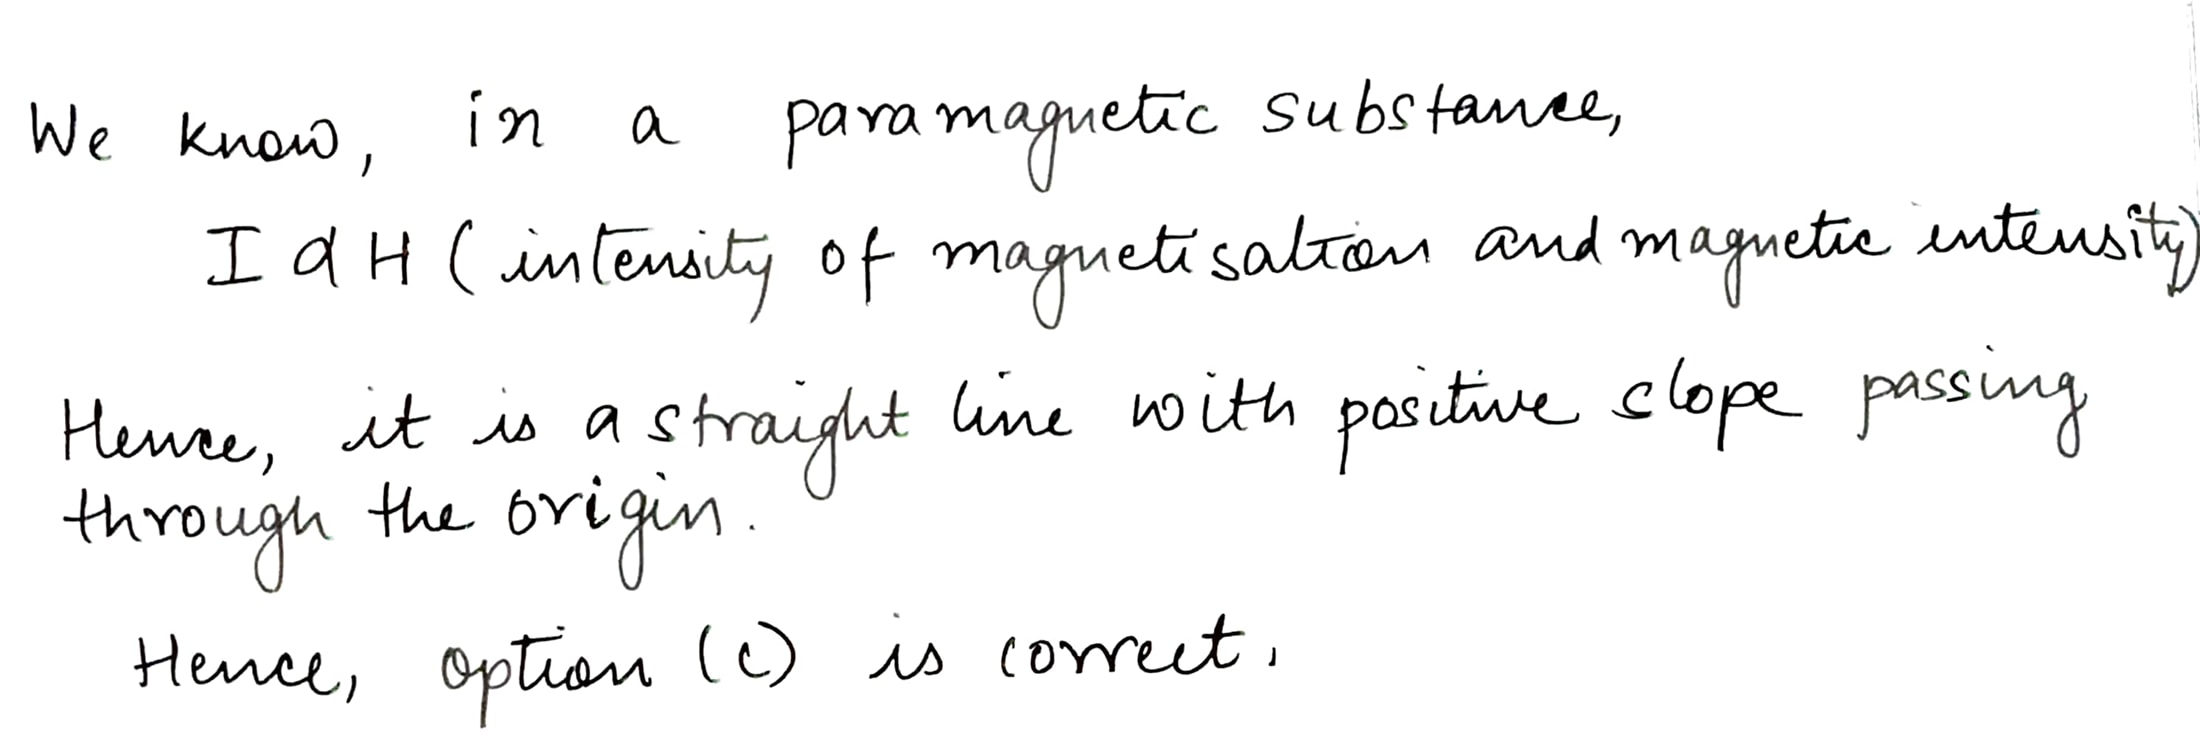 We know, in a paramagnetic substance,
I α H (intensity of magnetisation and magnetic intensity)
Hence, it is a straight line with positive slope passing
through the origin.
Hence, option (c) is correct.